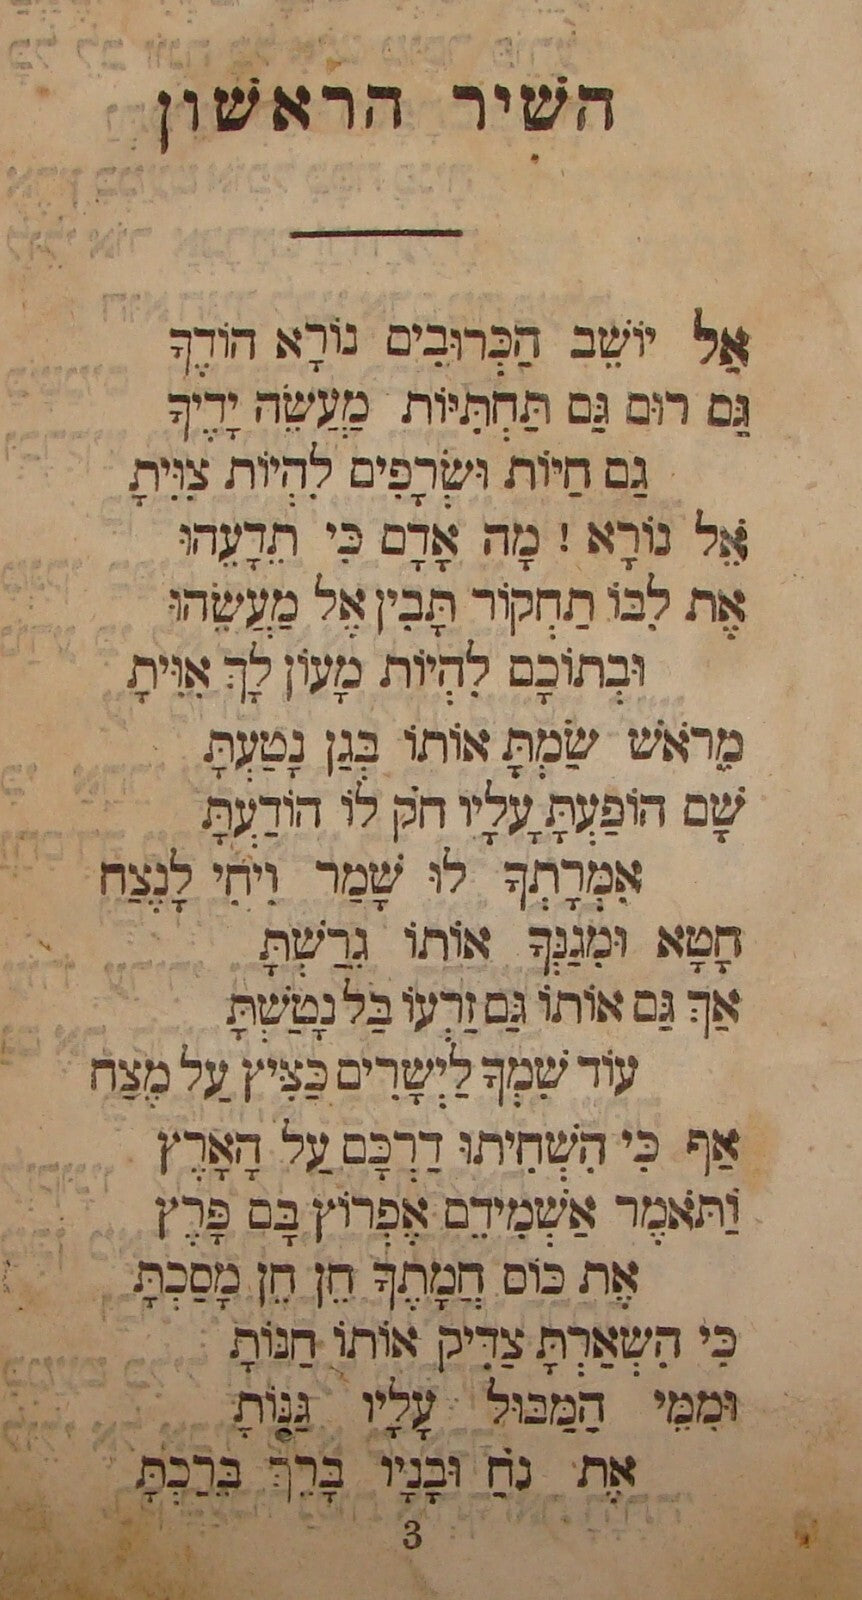 השיר הראשון
אַל יוֹשֵׁב הַכְּרוּבִים נוֹרָא הוֹדֶךָ
גַּם רוּם גַּם תַּחְתִּיּוֹת מַעֲשֵׂה יָדֶיךָ
גַּם חַיּוֹת וּשְׂרָפִים לִהְיוֹת צִוִּיתָ
אֵל נוֹרָא ! מָה אָדָם כִּי תֵדָעֵהוּ
אֶת לִבּוֹ תַחְקוֹר תָּבִין אֶל מַעֲשֵׂהוּ
וּבְתוֹכָם לִהְיוֹת מָעוֹן לָךְ אִוִּיתָ
מֵרֹאשׁ שַׂמְתָּ אוֹתוֹ בְּגַן נָטַעְתָּ
שָׁם הוֹפַעְתָּ עָלָיו חֹק לוֹ הוֹדַעְתָּ
אִמְרָתְךָ לוּ שָׁמַר וִיחִי לָנֶצַח
חָטָא וּמִגַּנְּךָ אוֹתוֹ גֵרַשְׁתָּ
אַךְ גַּם אוֹתוֹ גַּם זַרְעוֹ בַּל נָטַשְׁתָּ
עוֹד שִׁמְךָ לַיְשָׁרִים כַּצִּיץ עַל מֶצַח
אַף כִּי הִשְׁחִיתוּ דַרְכָּם עַל הָאָרֶץ
וַתֹּאמֶר אַשְׁמִידֵם אֶפְרוֹץ בָּם פָּרֶץ
אֶת כּוֹס חֲמָתֶךָ חֵן חֵן מָסַכְתָּ
כִּי הִשְׁאַרְתָּ צַדִּיק אוֹתוֹ חַנּוֹתָ
וּמִמֵּי הַמַּבּוּל עָלָיו גַּנּוֹתָ
אֶת נֹחַ וּבָנָיו בָּרֵךְ בֵּרַכְתָּ
3